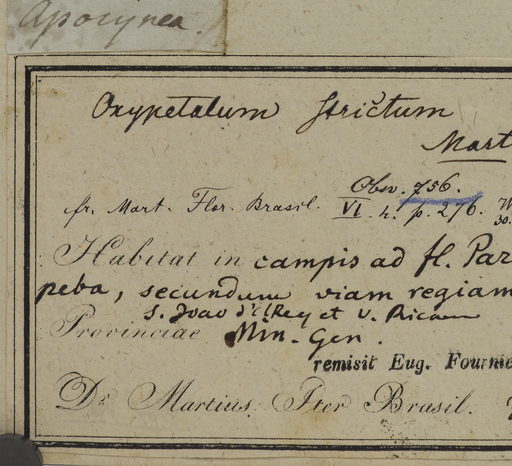 Apocynea.
Oxypetalum strictum
Mart
Obsv. 756.
fr. Mart. Flor. Brasil. VI. 4. p. 276.
Habitat in campis ad fl. Par
peba, secundum viam regiam
S. Joao d'ElRey et V. Ricam
Provinciae Min. Gen.
remisit Eug. Fournie
Dr Martius. Iter Brasil.